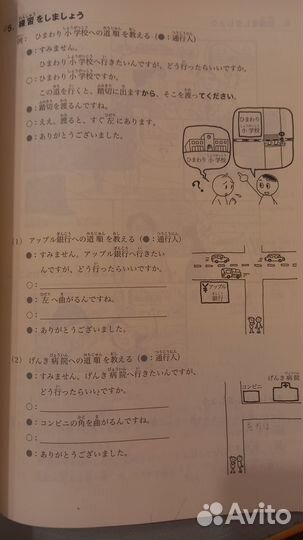 5. 練習をしましょう
例：ひまわり小学校への道順を教える（●：通行人）
●：すみません。
ひまわり小学校へ行きたいんですが、どう行ったらいいですか。
○：ひまわり小学校ですか。
この道を行くと、踏切に出ますから、そこを渡ってください。
●：踏切を渡るんですね。
○：ええ。渡ると、すぐ左にあります。
●：ありがとうございました。
ひまわり
小学校
ひまわり小学校
(1) アップル銀行への道順を教える（●：通行人）
●：すみません。アップル銀行へ行きたい
んですが、どう行ったらいいですか。
○：
●：左へ曲がるんですね。
○：
●：ありがとうございました。
¥アップル
銀行
(2) げんき病院への道順を教える（●：通行人）
●：すみません。げんき病院へ行きたいんですが、
どう行ったらいいですか。
○：
●：コンビニの角を曲がるんですね。
○：
●：ありがとうございました。
げんき病院
コンビニ
Avito